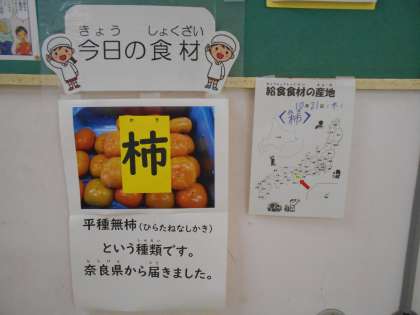 きょう しょくざい
今日の食材
かき
柿
平種無柿(ひらたねなしかき)
という種類です。
奈良県から届きました。
給食食材の産地
10月21日(木)
<柿>